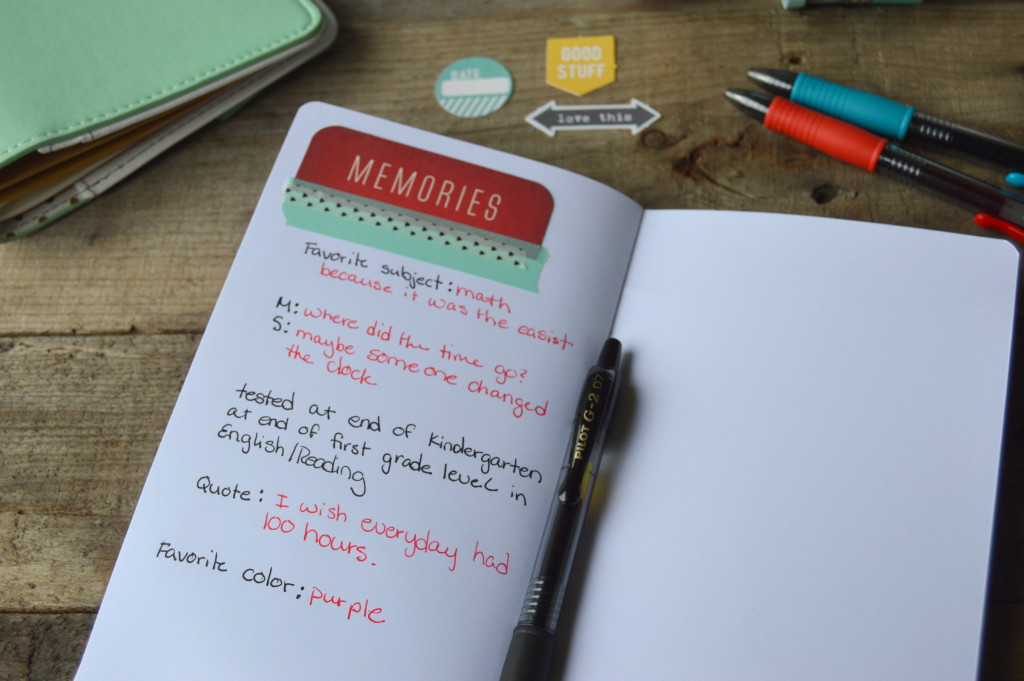 DATE
GOOD
STUFF
love this
MEMORIES
Favorite subject: math
because it was the easist
M: where did the time go?
S: maybe someone changed
the clock
tested at end of Kindergarten
at end of first grade level in
English/Reading
Quote: I wish everyday had
100 hours.
Favorite color: purple
PILOT G-2 07